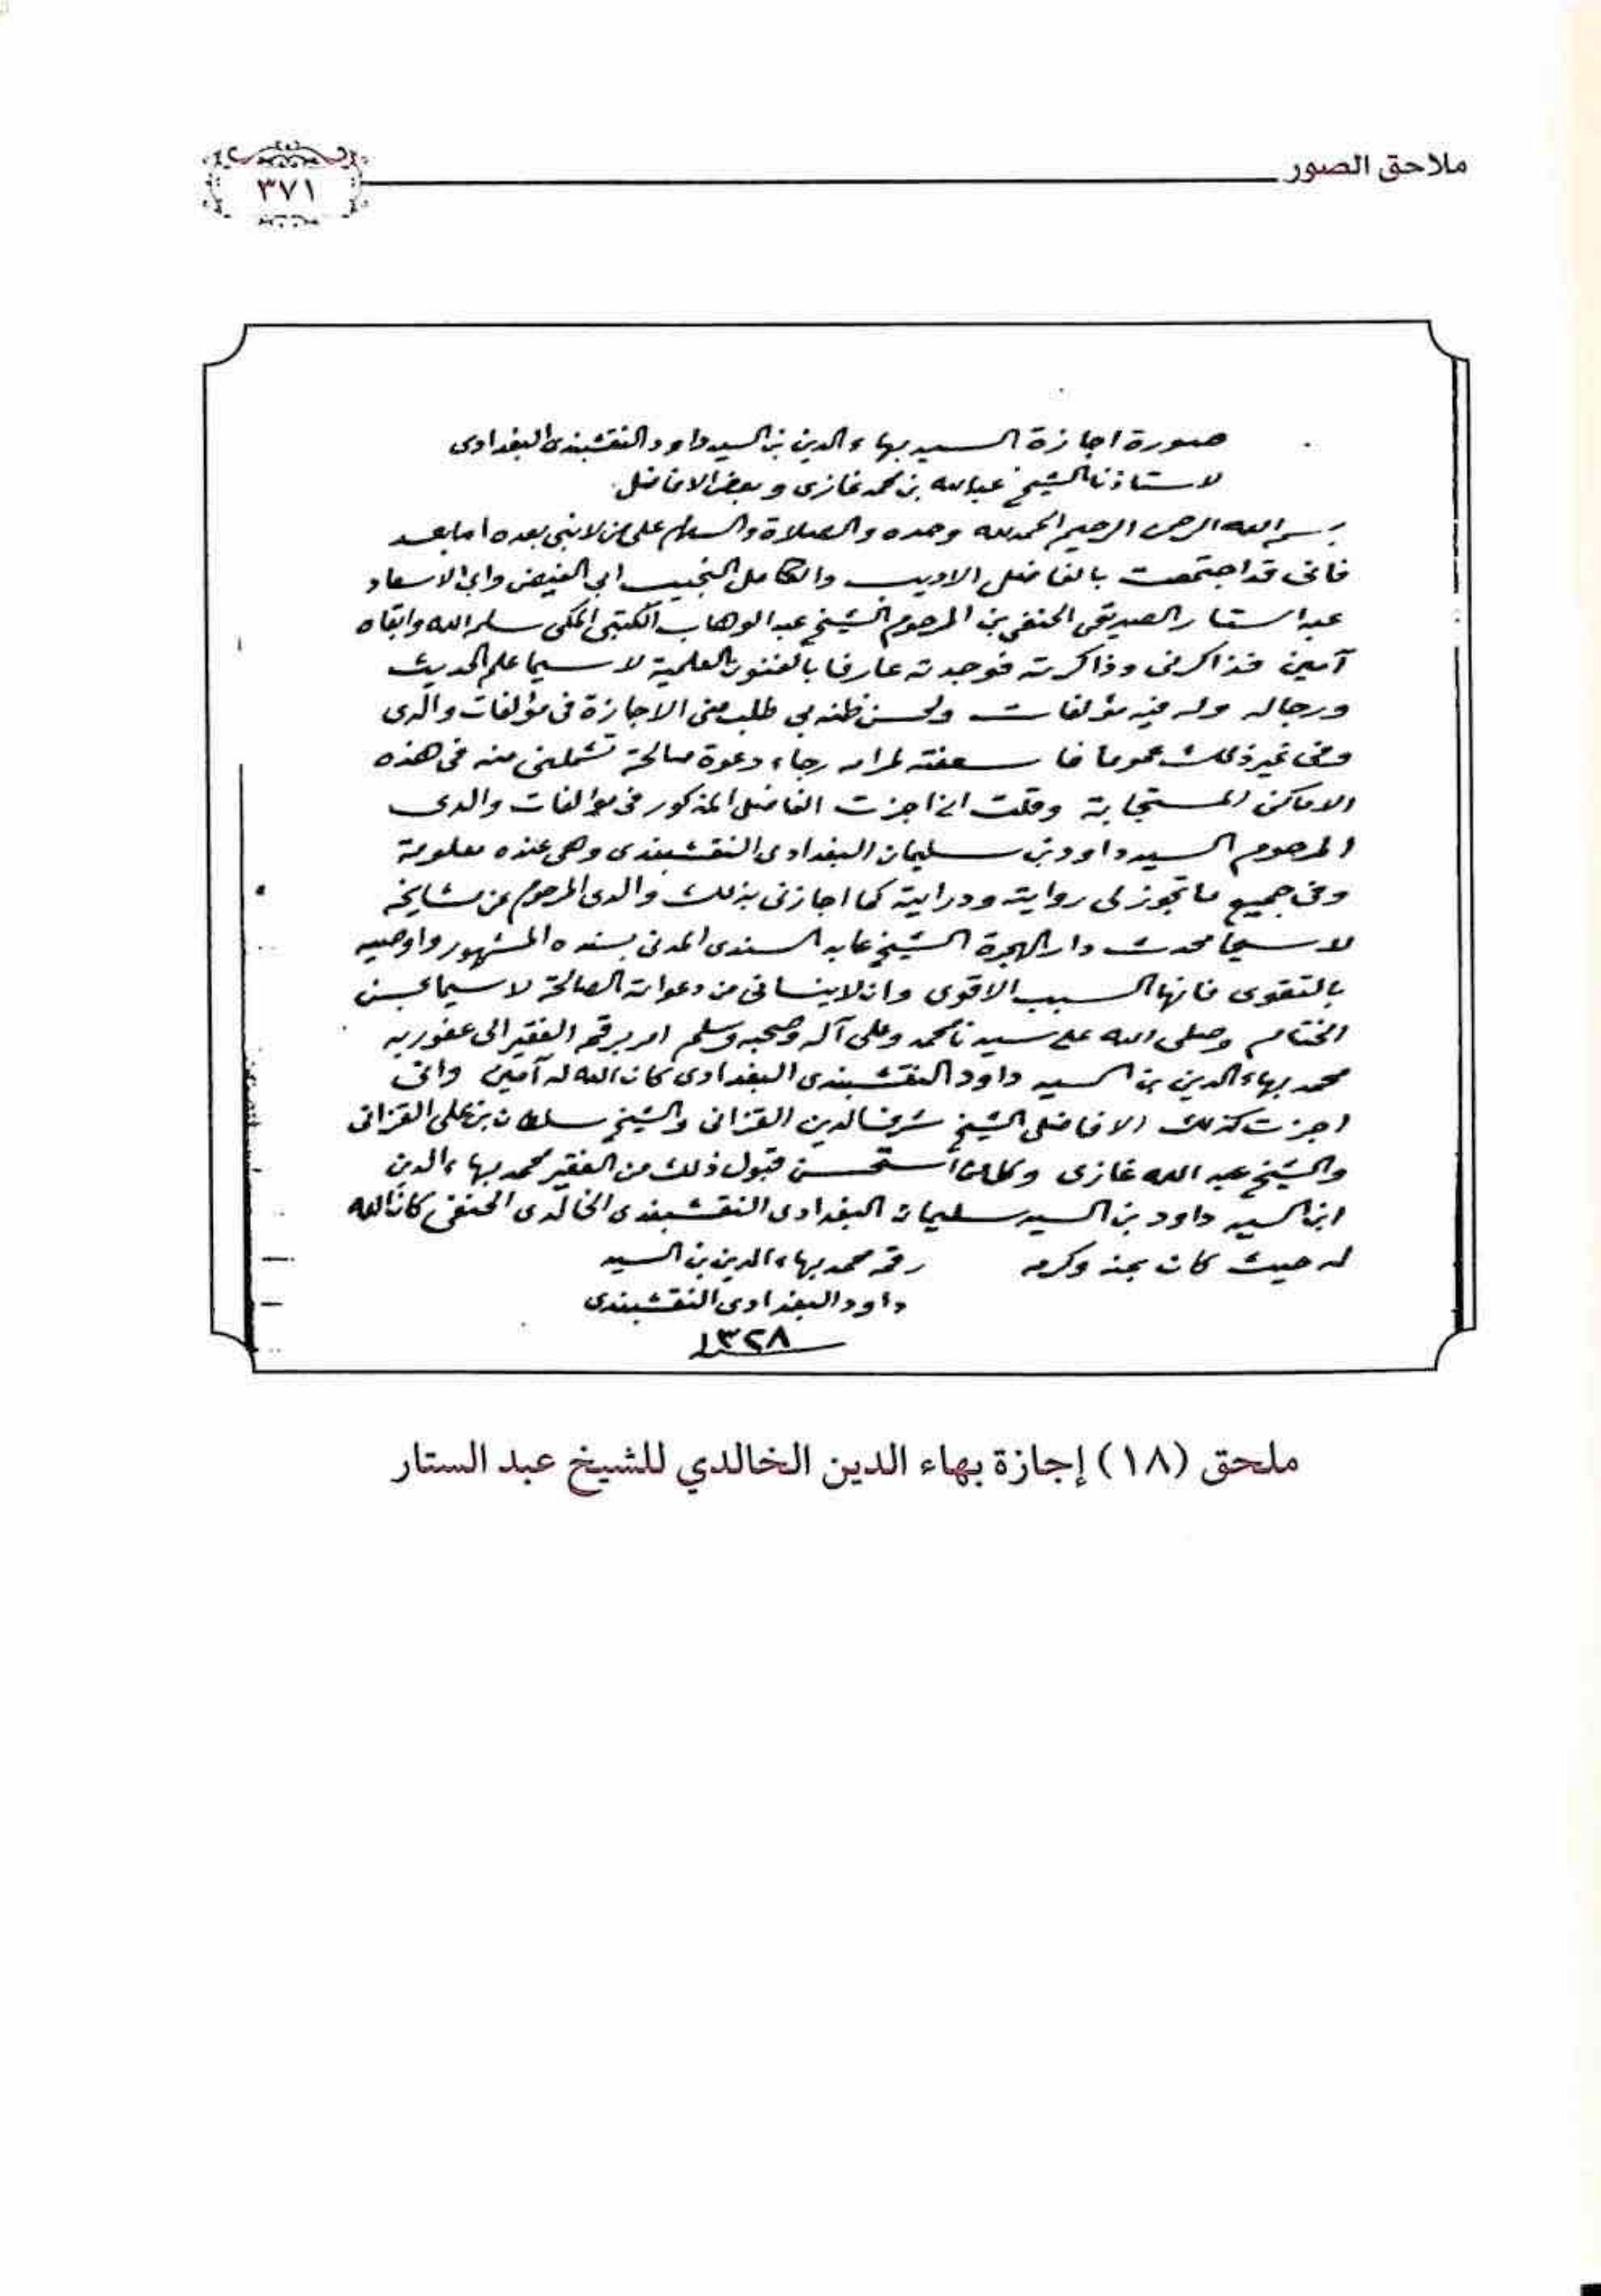 ملاحق الصور
٣٧١
صورة اجازة السيد بهاء الدين بن السيد داود النقشبندى البغدادى
لاستاذنا الشيخ عبدالله بن محمد غازى وبعض الافاضل
بسم الله الرحمن الرحيم الحمد لله وحده والصلاة والسلام على من لا نبي بعده اما بعد
فانى قد اجتمعت بالفاضل الاديب والكامل النجيب ابى الفيض وابى الاسعاد
عبد الستار الصديقى الحنفى بن المرحوم الشيخ عبد الوهاب الكتبى المكى سلمه الله وابقاه
آمين فذاكرنى وذاكرته فوجدته عارفا بالفنون العلمية لا سيما علم الحديث
ورجاله وله فيه مؤلفات ولحسن ظنه بى طلب منى الاجازة فى مؤلفات والدى
وفى غير ذلك عموما فاسعفته لمرامه رجاء دعوة صالحة تشملنى منه فى هذه
الاماكن المستجابة وقلت انى اجزت الفاضل المذكور فى مؤالفات والدى
المرحوم السيد داود بن سليمان البغدادى النقشبندى وهى عنده معلومة
وفى جميع ما تجوز لى روايته ودرايته كما اجازنى بذلك والدى المرحوم عن مشايخه
لا سيما محدث دار الهجرة الشيخ عابد السندى المدنى بسنده المشهور واوصيه
بالتقوى فانها السبب الاقوى وان لا ينسانى من دعواته الصالحة لا سيما بحسن
الختام وصلى الله على سيدنا محمد وعلى آله وصحبه وسلم امر برقمه الفقير الى عفو ربه
محمد بهاء الدين بن السيد داود النقشبندى البغدادى كان الله له آمين وانى
اجزت كذلك الافاضل الشيخ شرف الدين القزانى والشيخ سلطان بن على القزانى
والشيخ عبد الله غازى وكلامنا أستحسن قبول ذلك من الفقير محمد بهاء الدين
ابن السيد داود بن السيد سليمان البغدادى النقشبندى الخالدى الحنفى كان الله
له حيث كان بمنه وكرمه رقمه محمد بهاء الدين بن السيد
داود البغدادى النقشبندى
١٣٢٨
ملحق (١٨) إجازة بهاء الدين الخالدي للشيخ عبد الستار